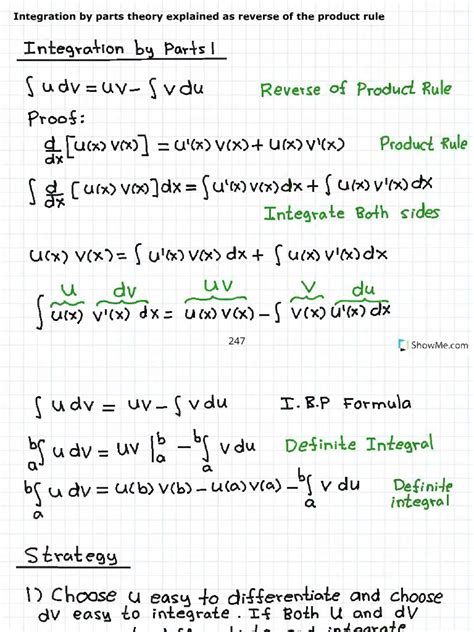 Integration by parts theory explained as reverse of the product rule
Integration by Parts 1
∫ u dv = uv - ∫ v du Reverse of Product Rule
Proof:
d/dx [u(x) v(x)] = u'(x) v(x) + u(x) v'(x) Product Rule
∫ d/dx [u(x) v(x)] dx = ∫ u'(x) v(x) dx + ∫ u(x) v'(x) dx
Integrate Both sides
u(x) v(x) = ∫ u'(x) v(x) dx + ∫ u(x) v'(x) dx
u dv uv v du
∫ u(x) v'(x) dx = u(x) v(x) - ∫ v(x) u'(x) dx
247
ShowMe.com
∫ u dv = uv - ∫ v du I.B.P Formula
b∫a u dv = uv |b a - b∫a v du Definite Integral
b∫a u dv = u(b) v(b) - u(a) v(a) - b∫a v du Definite
integral
Strategy
1) Choose u easy to differentiate and choose
dv easy to integrate. If Both u and dv